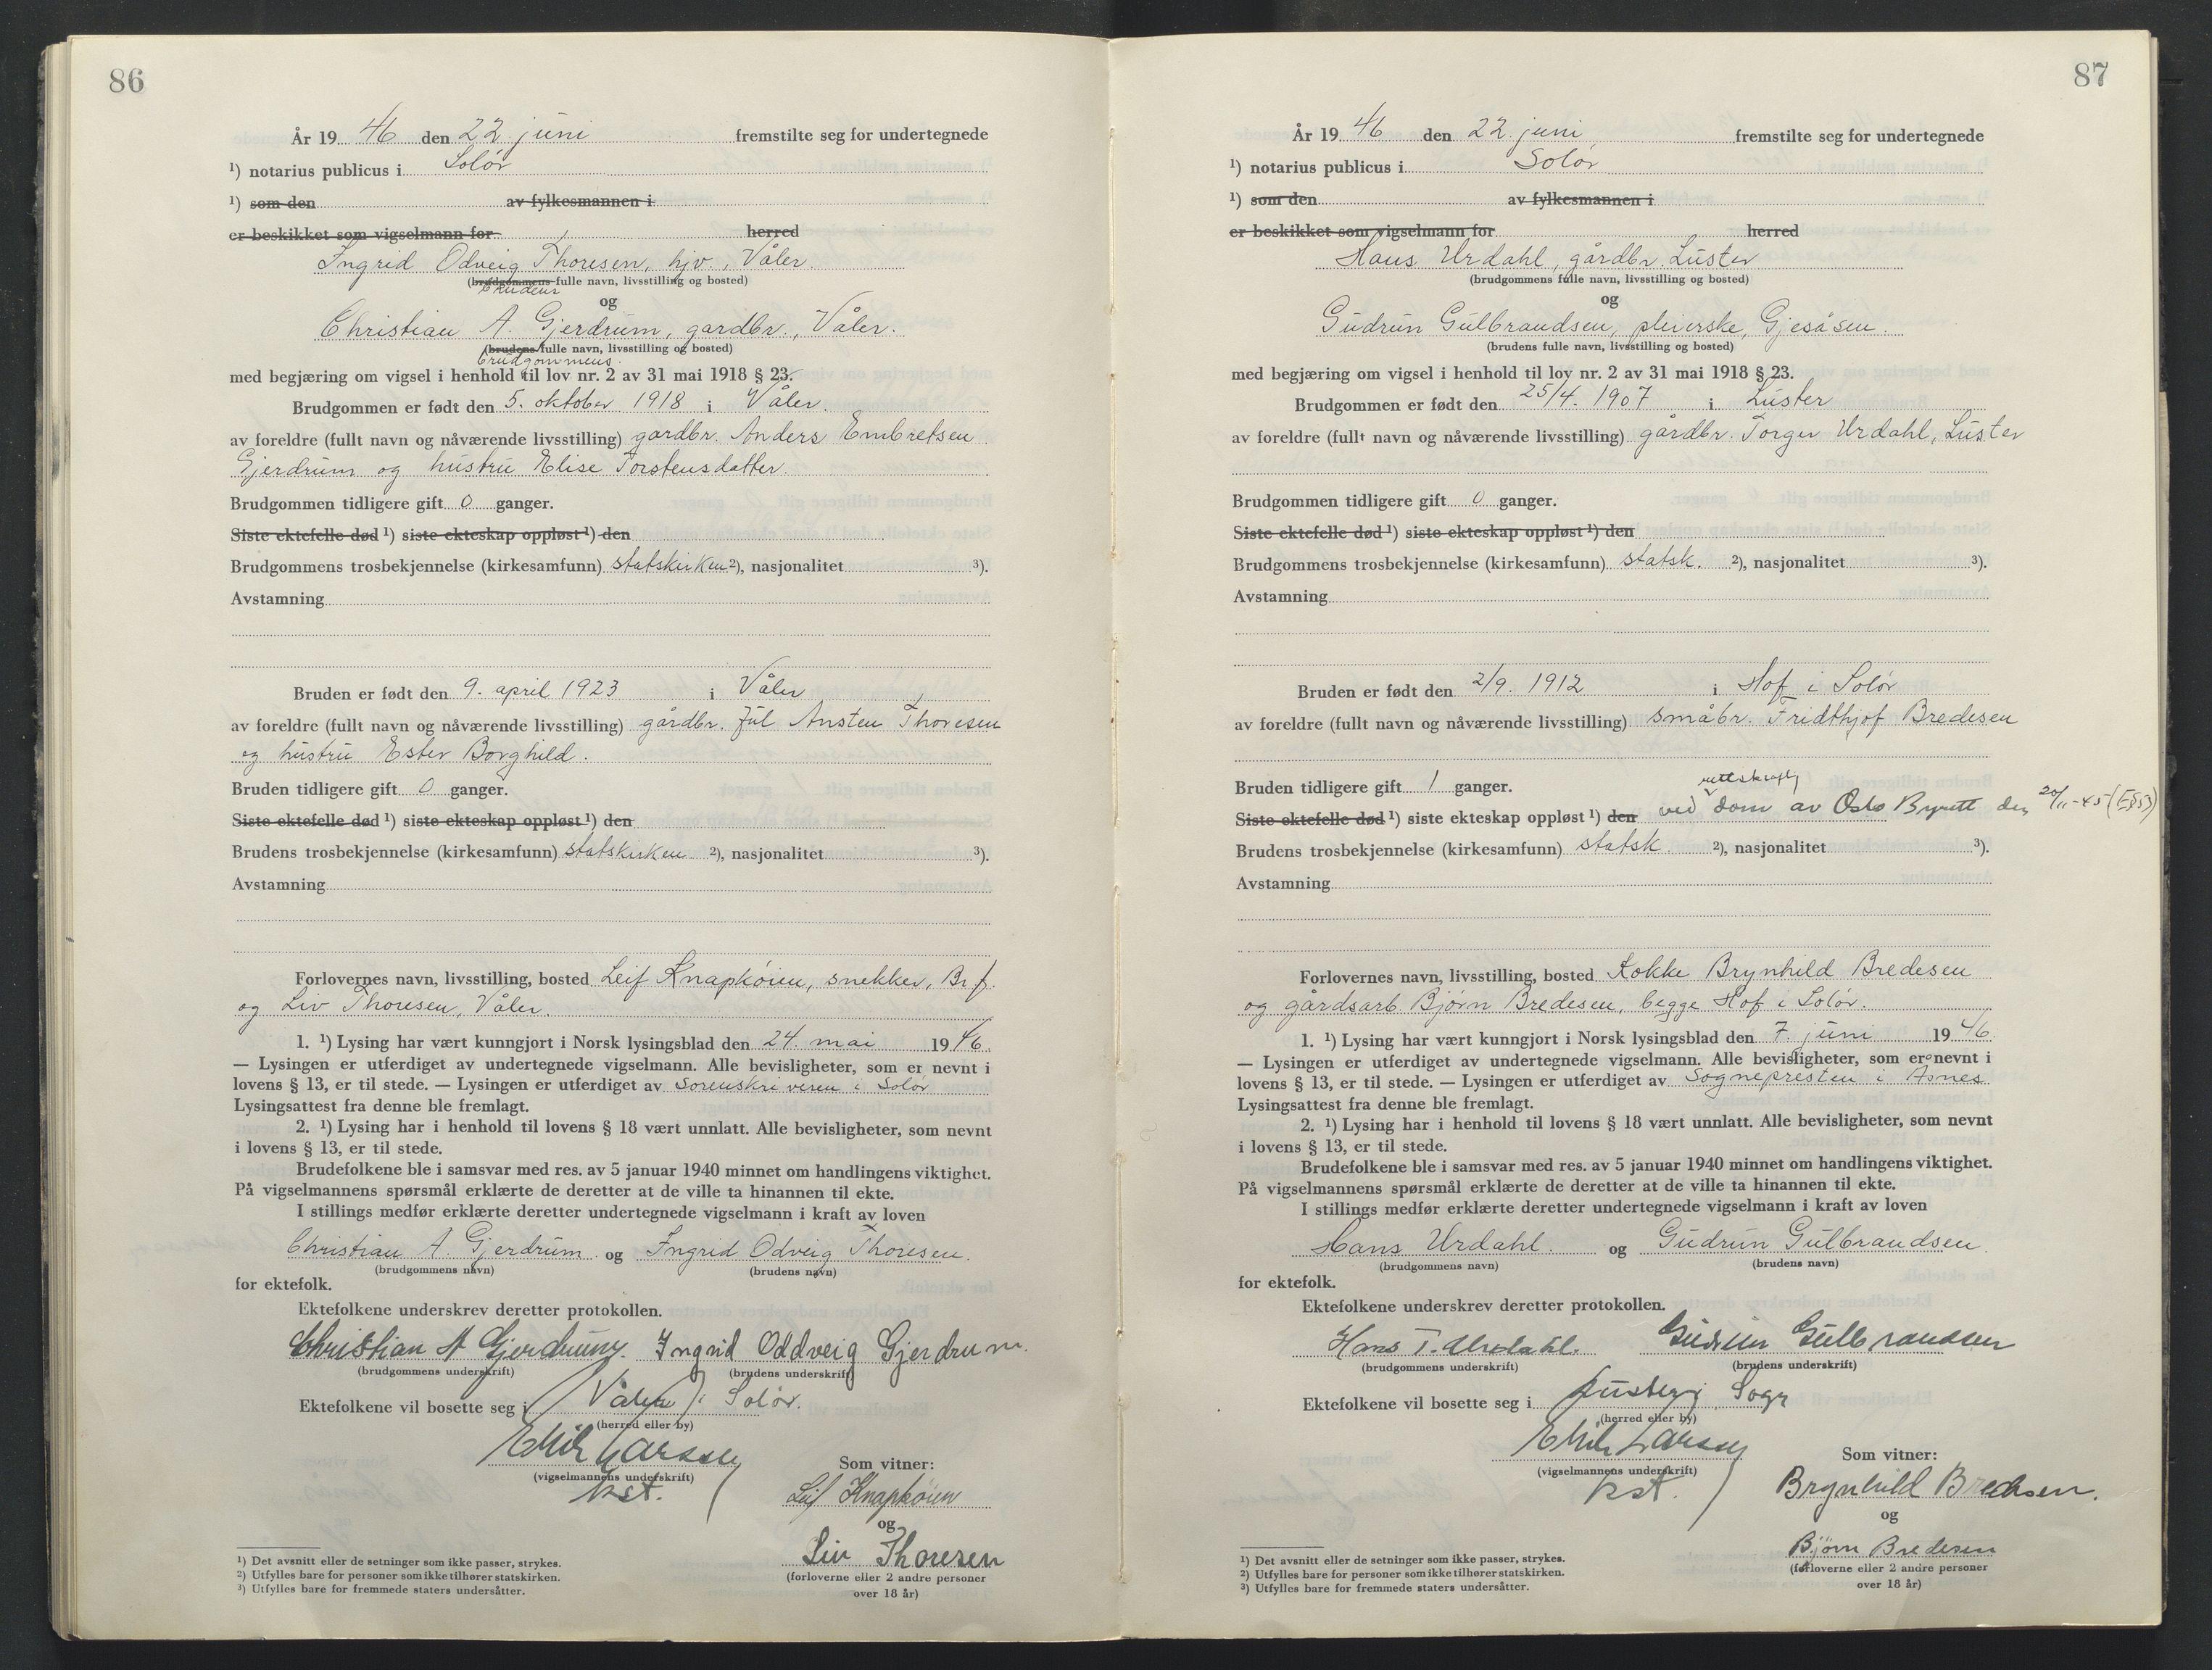 86
År 19 46 den 22. juni fremstilte seg for undertegnede
1) notarius publicus i Solør
1) som den av fylkesmannen i
er beskikket som vigselmann for herred
Ingrid Odveig Thoresen, hjv., Våler.
(brudgommens fulle navn, livsstilling og bosted)
brudens
og
Christian A. Gjerdrum, gardbr., Våler.
(brudens fulle navn, livsstilling og bosted)
brudgommens.
med begjæring om vigsel i henhold til lov nr. 2 av 31 mai 1918 § 23.
Brudgommen er født den 5. oktober 1918 i Våler.
av foreldre (fullt navn og nåværende livsstilling) gardbr. Anders Embretsen
Gjerdrum og hustru Elise Torstensdatter.
Brudgommen tidligere gift 0 ganger.
Siste ektefelle død 1) siste ekteskap oppløst 1) den
Brudgommens trosbekjennelse (kirkesamfunn) statskirken 2), nasjonalitet 3).
Avstamning
Bruden er født den 9. april 1923 i Våler
av foreldre (fullt navn og nåværende livsstilling) gårdbr. Jul Ansten Thoresen
og hustru Ester Borghild.
Bruden tidligere gift 0 ganger.
Siste ektefelle død 1) siste ekteskap oppløst 1) den
Brudens trosbekjennelse (kirkesamfunn) statskirken 2), nasjonalitet 3).
Avstamning
Forlovernes navn, livsstilling, bosted Leif Knapkøien, snekker, Br.f.
og Liv Thoresen, Våler.
1. 1) Lysing har vært kunngjort i Norsk lysingsblad den 24. mai 19 46.
— Lysingen er utferdiget av undertegnede vigselmann. Alle bevisligheter, som er nevnt i
lovens § 13, er til stede. — Lysingen er utferdiget av Sorenskriveren i Solør
Lysingsattest fra denne ble fremlagt.
2. 1) Lysing har i henhold til lovens § 18 vært unnlatt. Alle bevisligheter, som nevnt
i lovens § 13, er til stede.
Brudefolkene ble i samsvar med res. av 5 januar 1940 minnet om handlingens viktighet.
På vigselmannens spørsmål erklærte de deretter at de ville ta hinannen til ekte.
I stillings medfør erklærte deretter undertegnede vigselmann i kraft av loven
Christian A. Gjerdrum og Ingrid Odveig Thoresen.
(brudgommens navn) (brudens navn)
for ektefolk.
Ektefolkene underskrev deretter protokollen.
Christian A Gjerdrum. Ingrid Oddveig Gjerdrum.
(brudgommens underskrift) (brudens underskrift)
Ektefolkene vil bosette seg i Våler i Solør.
(herred eller by)
Erik Larssen
(vigselmannens underskrift)
kst.
Som vitner:
Leif Knapkøien
og
Liv Thoresen
(forloverne eller 2 andre personer
over 18 år)
1) Det avsnitt eller de setninger som ikke passer, strykes.
2) Utfylles bare for personer som ikke tilhører statskirken.
3) Utfylles bare for fremmede staters undersåtter.
87
År 19 46 den 22. juni fremstilte seg for undertegnede
1) notarius publicus i Solør
1) som den av fylkesmannen i
er beskikket som vigselmann for herred
Hans Urdahl, gårdbr. Luster
(brudgommens fulle navn, livsstilling og bosted)
og
Gudrun Gulbrandsen, pleierske, Gjesåsen.
(brudens fulle navn, livsstilling og bosted)
med begjæring om vigsel i henhold til lov nr. 2 av 31 mai 1918 § 23.
Brudgommen er født den 25/4. 1907 i Luster
av foreldre (fullt navn og nåværende livsstilling) gårdbr. Torger Urdahl, Luster
Brudgommen tidligere gift 0 ganger.
Siste ektefelle død 1) siste ekteskap oppløst 1) den
Brudgommens trosbekjennelse (kirkesamfunn) statsk. 2), nasjonalitet 3).
Avstamning
Bruden er født den 2/9. 1912 i Hof i Solør
av foreldre (fullt navn og nåværende livsstilling) småbr. Fridthjof Bredesen
Bruden tidligere gift 1 ganger.
rettskraftig
Siste ektefelle død 1) siste ekteskap oppløst 1) den ved dom av Oslo Byrett den 20/11-45 (E§53)
Brudens trosbekjennelse (kirkesamfunn) statsk. 2), nasjonalitet 3).
Avstamning
Forlovernes navn, livsstilling, bosted Kokke Brynhild Bredesen
og gårdsarb. Bjørn Bredesen, begge Hof i Solør.
1. 1) Lysing har vært kunngjort i Norsk lysingsblad den 7. juni 19 46.
— Lysingen er utferdiget av undertegnede vigselmann. Alle bevisligheter, som er nevnt i
lovens § 13, er til stede. — Lysingen er utferdiget av Sognepresten i Åsnes
Lysingsattest fra denne ble fremlagt.
2. 1) Lysing har i henhold til lovens § 18 vært unnlatt. Alle bevisligheter, som nevnt
i lovens § 13, er til stede.
Brudefolkene ble i samsvar med res. av 5 januar 1940 minnet om handlingens viktighet.
På vigselmannens spørsmål erklærte de deretter at de ville ta hinannen til ekte.
I stillings medfør erklærte deretter undertegnede vigselmann i kraft av loven
Hans Urdahl. og Gudrun Gulbrandsen
(brudgommens navn) (brudens navn)
for ektefolk.
Ektefolkene underskrev deretter protokollen.
Hans T. Urdahl. Gudrun Gulbrandsen
(brudgommens underskrift) (brudens underskrift)
Ektefolkene vil bosette seg i Luster i Sogn
(herred eller by)
Erik Larssen
(vigselmannens underskrift)
kst.
Som vitner:
Brynhild Bredesen.
og
Bjørn Bredesen
(forloverne eller 2 andre personer
over 18 år)
1) Det avsnitt eller de setninger som ikke passer, strykes.
2) Utfylles bare for personer som ikke tilhører statskirken.
3) Utfylles bare for fremmede staters undersåtter.